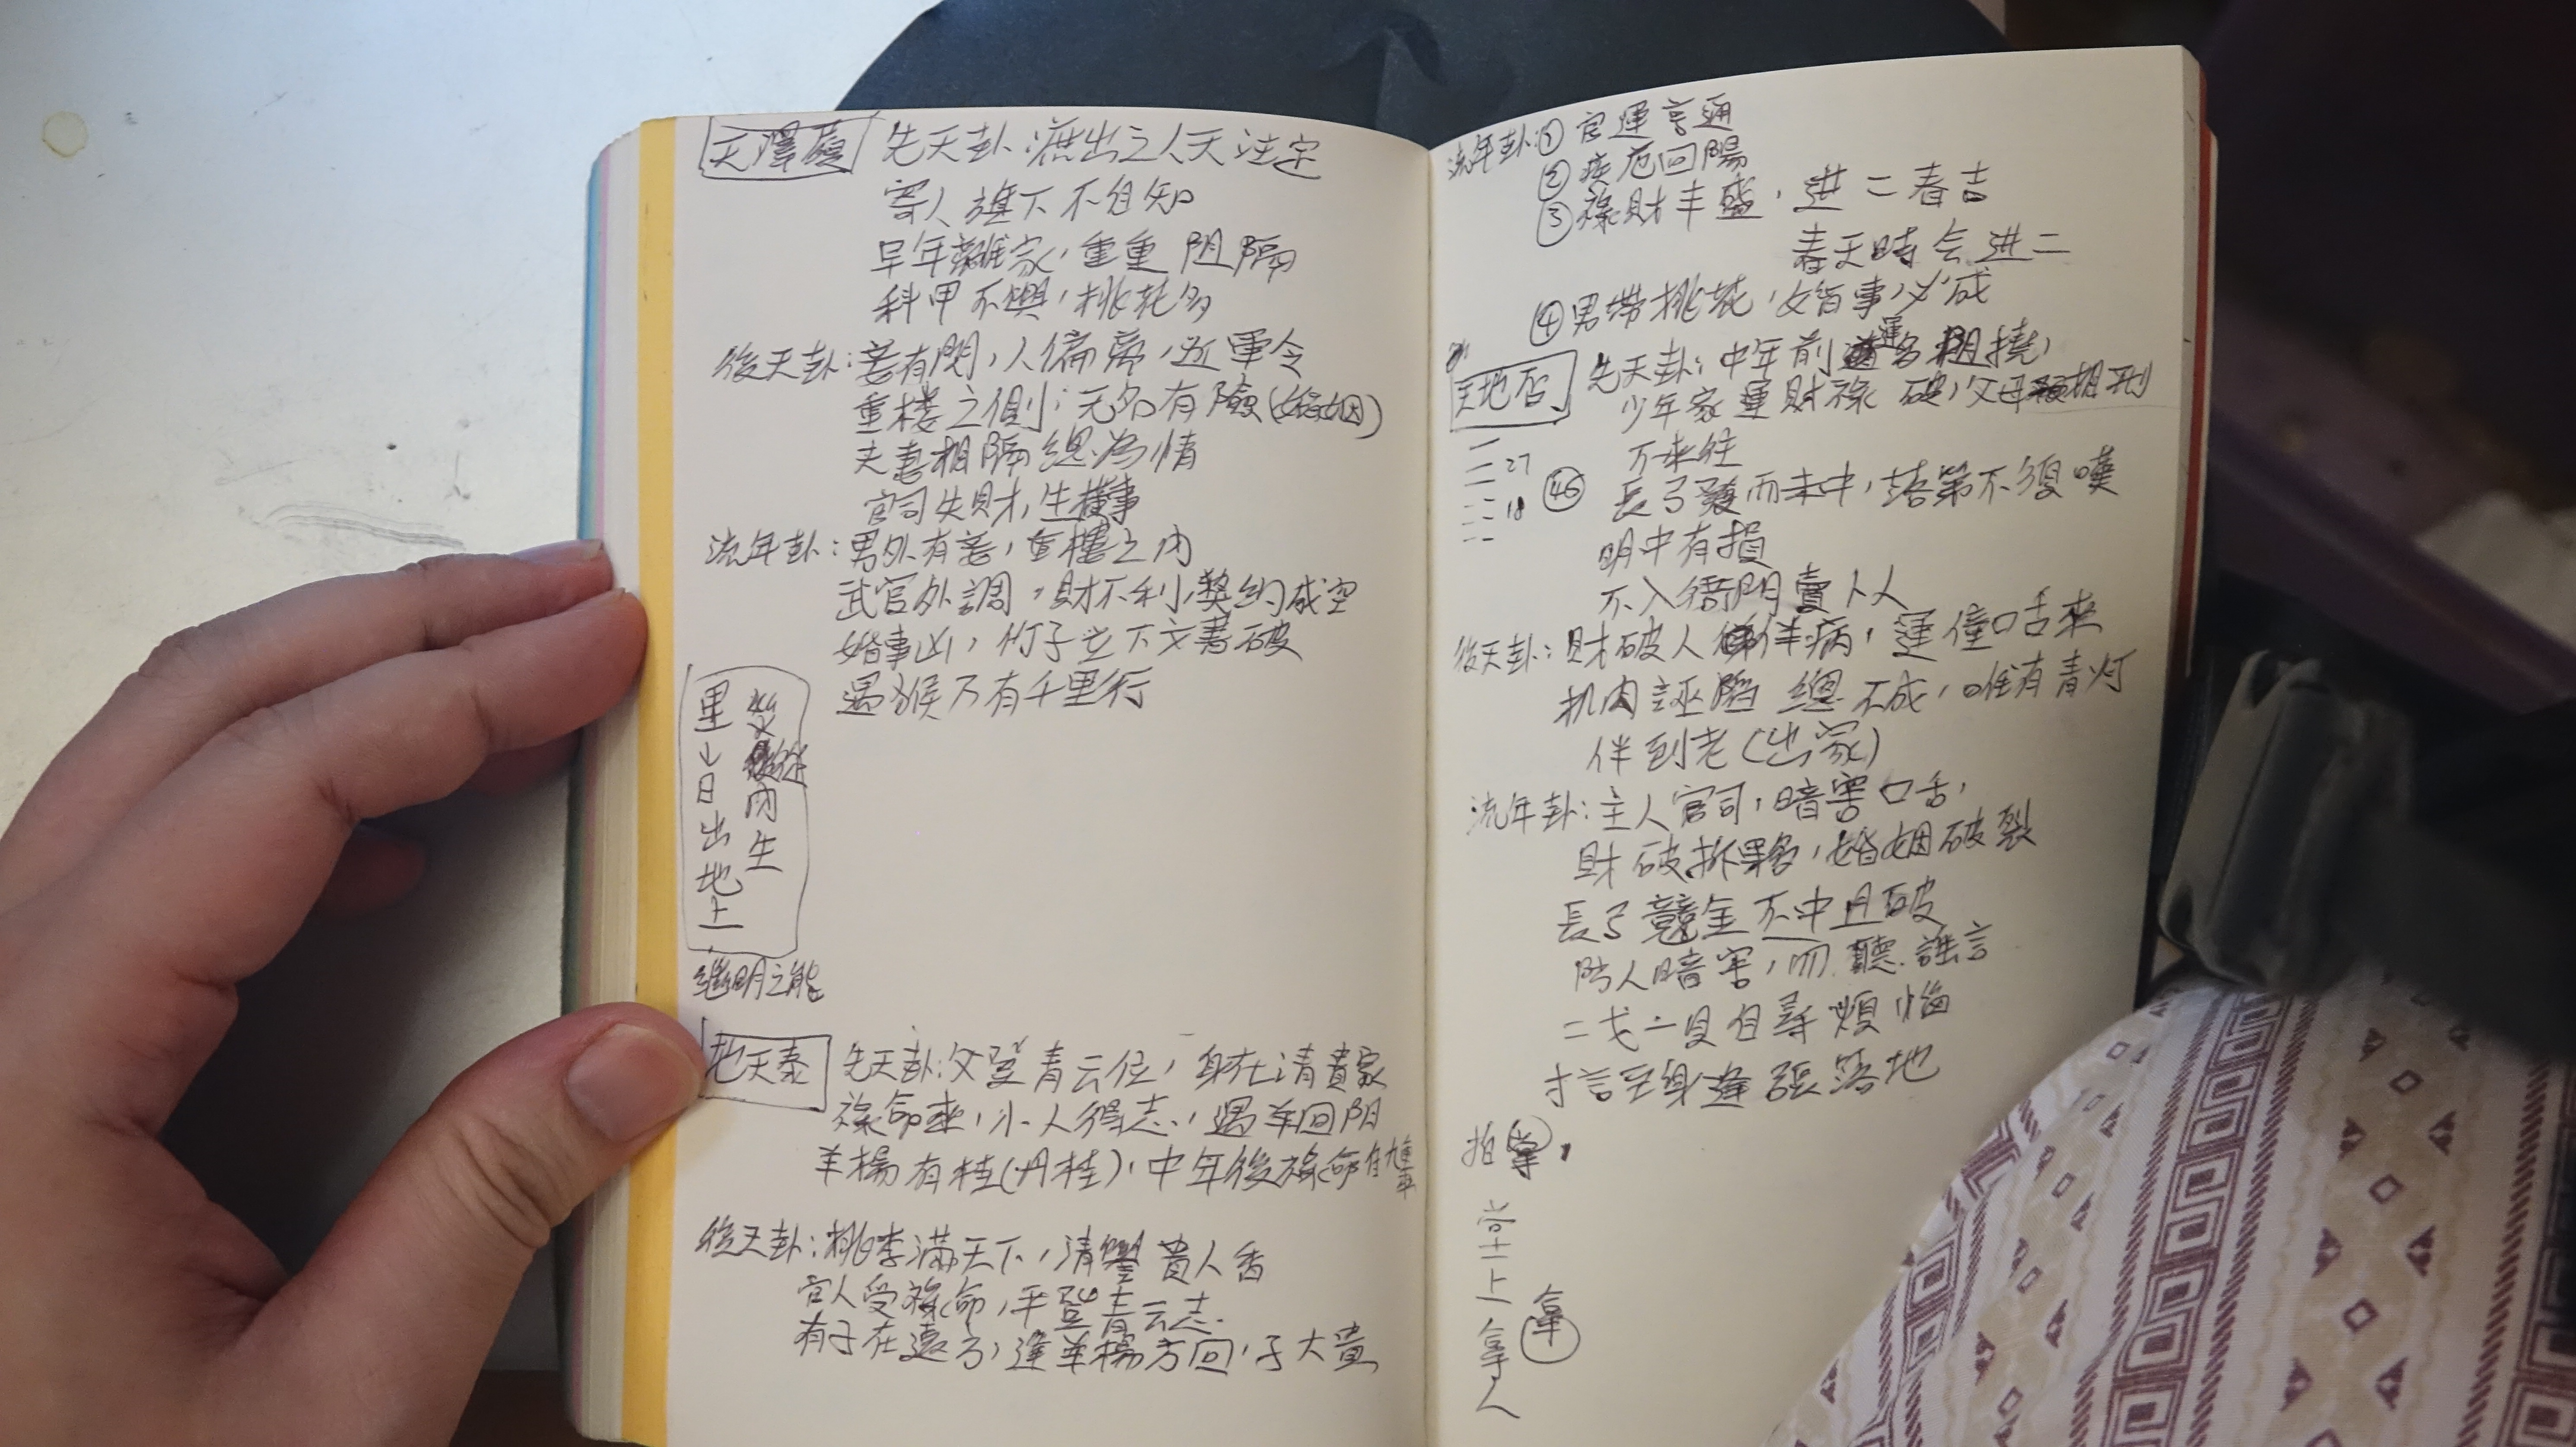 天澤履 先天卦:庶出之人天注定
寄人旗下不自知
早年離家,重重阻隔
科甲不與,桃花多
後天卦:妾有閃,人偏房,近軍令
重楼之側;无名有險(婚姻)
夫妻相隔總為情
官司失財,生横事
流年卦:男外有妾,重樓之內
武官外調,財不利,契約成空
婚事凶,竹子立下文書破
遇猴方有千里行
從內生
里↓日出地士
继明之能
地天泰 先天卦:父登青云位,身在清貴家
祿命來,小人得志,遇羊回阴
羊楊有桂(丹桂),中年後祿命自
後天卦:桃李滿天下,清 貴人香
官人受祿命,平登青云志.
有子在遠方,逢羊楊方回,子大貴
流年卦:① 官運亨通
② 疾危回陽
③ 祿財丰盛,進二春吉
春天時会进二
④ 男带桃花,婚事必成
天地否 先天卦:中年前運多阻撓,
少年家運財祿破,父母相刑
不來往
27
18
㊻ 長弓發而未中,落第不須嘆
明中有損
不入衙門賣卜人
後天卦:財破人伴病,運僮口舌來
机肉誣陷總不成,唯有青灯
伴到老(出家)
流年卦:主人官司,暗害口舌,
財破拆夥,婚姻破裂
長弓競金不中且破
防人暗害,而聽謠言
二戈一貝自尋煩惱
才言主身逢張落地
拍拿,
堂上拿人
拿